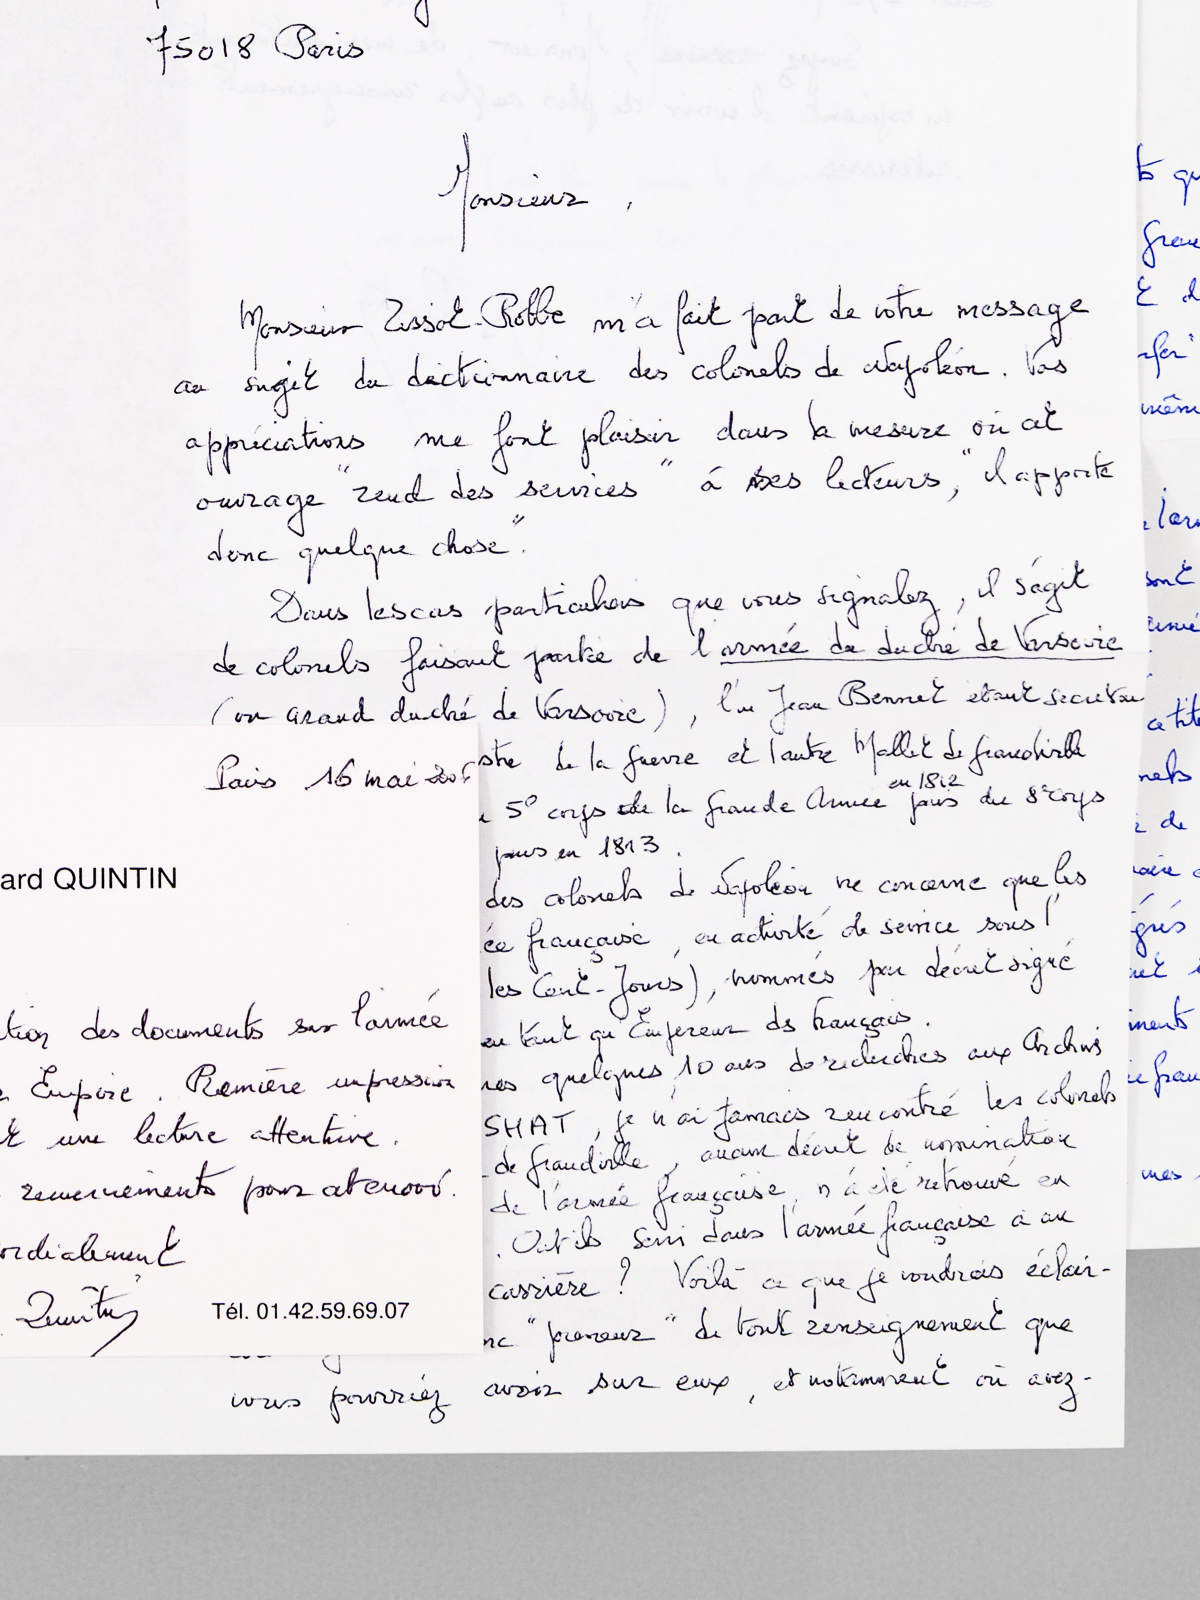 75018 Paris
Monsieur,
Monsieur Tissot-Robbe m'a fait part de votre message
au sujet du dictionnaire des colonels de Napoléon. Vos
appréciations me font plaisir dans la mesure où cet
ouvrage "rend des services" à ses lecteurs, "il apporte
donc quelque chose".
Dans les cas particuliers que vous signalez, il s'agit
de colonels faisant partie de l'armée du duché de Varsovie
(ou Grand duché de Varsovie), l'un Jean Bennet étant
stre de la guerre et l'autre Mallet de Grandville
5° corps de la Grande Armée en 1812 puis du 8° corps
puis en 1813.
des colonels de Napoléon ne concerne que les
ée française, en activité de service sous l'
les Cent-Jours), nommés par décret signé
en tant qu'Empereur des Français.
quelques 10 ans de recherches aux Archives
SHAT, je n'ai jamais rencontré les colonels
de Grandville, aucun décret de nomination
de l'armée française, n'a été retrouvé en
. Ont-ils servi dans l'armée française à un
carrière ? Voilà ce que je voudrais éclair-
nc "preneur" de tout renseignement que
vous pourriez avoir sur eux, et notamment où avez-
Paris 16 mai
ard QUINTIN
tion des documents sur l'armée
Empire. Première impression
une lecture attentive.
remerciements pour cet envoi.
ordialement
Quintin
Tél. 01.42.59.69.07
ts qu
sont
même
ments
mes